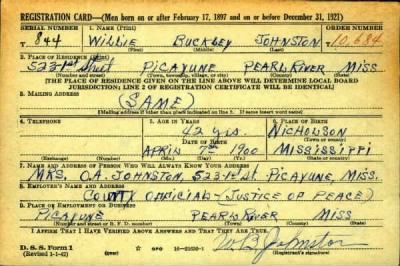 REGISTRATION CARD—(Men born on or after February 17, 1897 and on or before December 31, 1921)
SERIAL NUMBER 1. NAME (Print) ORDER NUMBER
T 844 WILLIE BUCKLEY JOHNSTON 10,684
(First) (Middle) (Last)
2. PLACE OF RESIDENCE (Print)
523-1st Street PICAYUNE PEARL RIVER MISS
(Number and street) (Town, township, village, or city) (County) (State)
[THE PLACE OF RESIDENCE GIVEN ON THE LINE ABOVE WILL DETERMINE LOCAL BOARD
JURISDICTION; LINE 2 OF REGISTRATION CERTIFICATE WILL BE IDENTICAL]
3. MAILING ADDRESS
(SAME)
[Mailing address if other than place indicated on line 2. If same insert word same]
4. TELEPHONE 5. AGE IN YEARS 6. PLACE OF BIRTH
42 yrs. NICHOLSON
DATE OF BIRTH (Town or county)
APRIL 7th 1900 MISSISSIPPI
(Exchange) (Number) (Mo.) (Day) (Yr.) (State or country)
7. NAME AND ADDRESS OF PERSON WHO WILL ALWAYS KNOW YOUR ADDRESS
MRS. O.A. JOHNSTON, 523-1st St. PICAYUNE, MISS.
8. EMPLOYER'S NAME AND ADDRESS
COUNTY OFFICIAL (JUSTICE OF PEACE)
9. PLACE OF EMPLOYMENT OR BUSINESS
PICAYUNE PEARL RIVER MISS
(Number and street or R. F. D. number) (Town) (County) (State)
I AFFIRM THAT I HAVE VERIFIED ABOVE ANSWERS AND THAT THEY ARE TRUE.
D. S. S. Form 1
(Revised 1-1-42) GPO 16-21630-1 W B Johnston